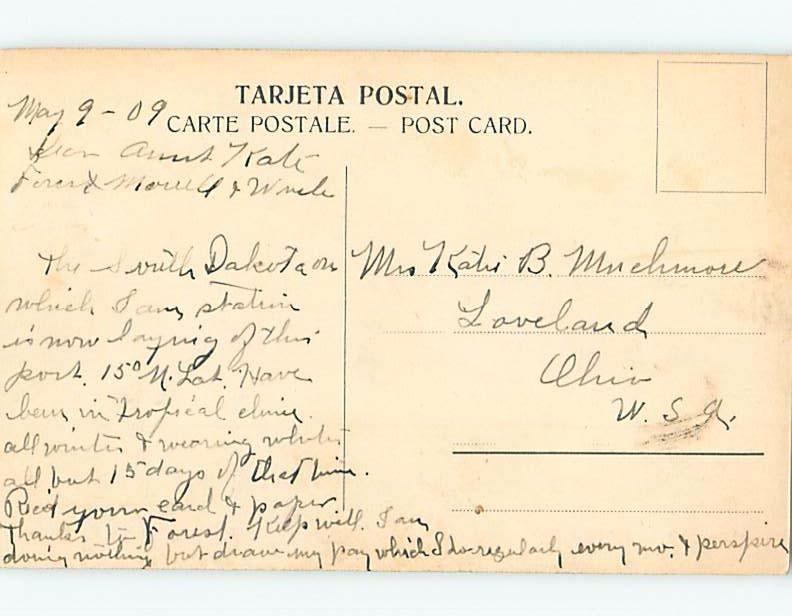 TARJETA POSTAL.
CARTE POSTALE. — POST CARD.
May 9 - 09
Dear Aunt Kate
Forest Morell & Uncle
The South Dakota on
which I am station
is now laying of this
port. 15° N. Lat. Have
been in tropical clime.
all winter & wearing whites
all but 15 days of that time.
Rec'd your card & paper.
Thanks to Forest. Keep well. I am
doing nothing but draw my pay which I do regularly every mo. & perspire
Mrs Katie B. Muchmore
Loveland
Ohio
U. S. A.